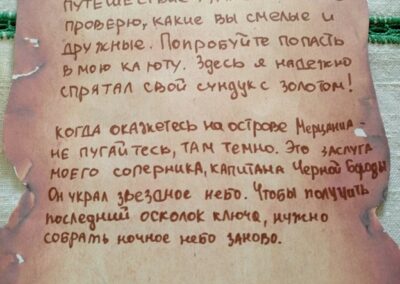 проверю, какие вы смелые и
дружные. Попробуйте попасть
в мою каюту. Здесь я надежно
спрятал свой сундук с золотом!
когда окажетесь на острове Мерцания -
не пугайтесь, там темно. Это заслуга
моего соперника, капитана Черной Бороды
Он украл звездное небо. Чтобы получить
последний осколок ключа, нужно
собрать ночное небо заново.